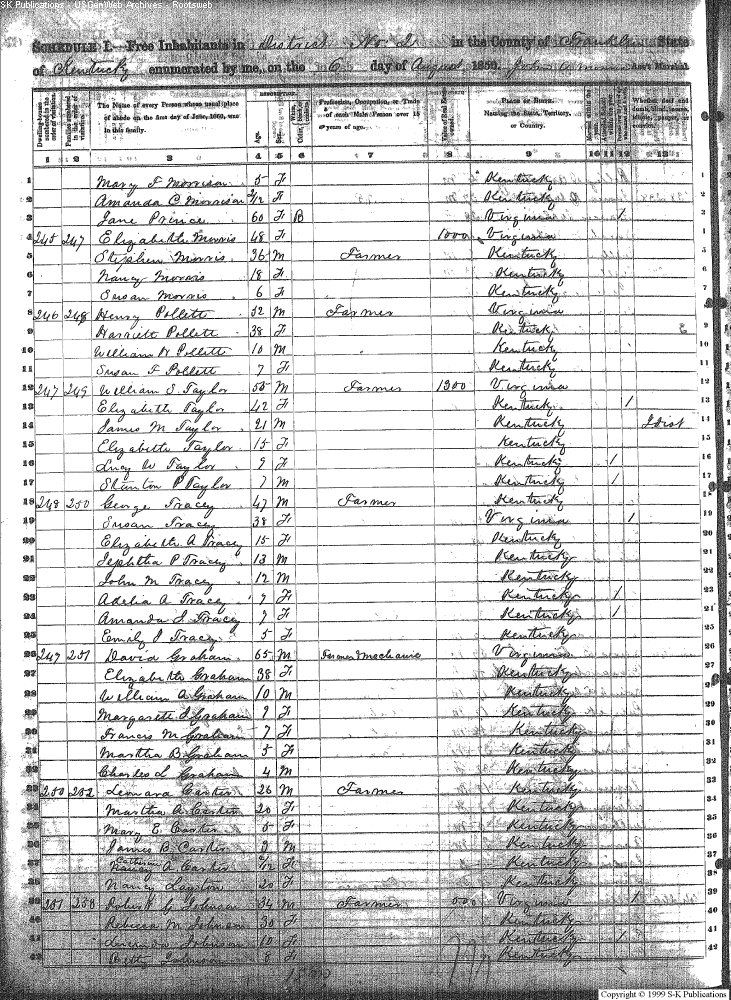 SK Publications - USGenWeb Archives - Rootsweb
SCHEDULE I.—Free Inhabitants in District No 2 in the County of Franklin State
of Kentucky enumerated by me, on the 6 day of August, 1850. Ass't Marshal.
Dwelling-houses numbered in the order of visitation. Families numbered in the order of visitation. The Name of every Person whose usual place of abode on the first day of June, 1850, was in this family. DESCRIPTION. Age. Sex. Profession, Occupation, or Trade of each Male Person over 15 years of age. Value of Real Estate owned. PLACE OF BIRTH. Naming the State, Territory, or Country. Whether deaf and dumb, blind, insane, idiotic, pauper, or convict.
1 2 3 4 5 6 7 8 9 10 11 12 13
1 Mary F Morrison 5 F Kentucky 1
2 Amanda C Morrison /12 F Kentucky 2
3 Jane Prince 60 F B Virginia / 3
4 245 247 Elizabeth Morris 48 F 1000 Virginia 4
5 Stephen Morris 36 M Farmer Kentucky 5
6 Nancy Morris 18 F Kentucky 6
7 Susan Morris 6 F Kentucky 7
8 246 248 Henry Pollett 52 M Farmer Virginia 8
9 Harriett Pollett 38 F Kentucky 9
10 William H Pollett 10 M Kentucky 10
11 Susan F Pollett 7 F Kentucky 11
12 247 249 William S. Taylor 50 M Farmer 1300 Virginia 12
13 Elizabeth Taylor 42 F Kentucky / 13
14 James M Taylor 21 M Kentucky Idiot 14
15 Elizabeth Taylor 15 F Kentucky 15
16 Lucy W Taylor 9 F Kentucky / 16
17 Stanton P Taylor 7 M Kentucky / 17
18 248 250 George Tracey 47 M Farmer Kentucky 18
19 Susan Tracey 38 F Virginia / 19
20 Elizabeth A Tracey 15 F Kentucky 20
21 Jephtha P Tracey 13 M Kentucky 21
22 John M Tracey 12 M Kentucky 22
23 Adelia A Tracey 9 F Kentucky / 23
24 Amanda J Tracey 7 F Kentucky / 24
25 Emily J Tracey 5 F Kentucky 25
26 249 251 David Graham 65 M Farmer & Mechanic Virginia 26
27 Elizabeth Graham 38 F Kentucky 27
28 William A Graham 10 M Kentucky 28
29 Margarett J Graham 9 F Kentucky 29
30 Francis M Graham 7 F Kentucky 30
31 Martha B Graham 5 F Kentucky 31
32 Charles L Graham 4 M Kentucky 32
33 250 252 Leonard Carter 26 M Farmer Kentucky 33
34 Martha A Carter 20 F Kentucky 34
35 Mary E Carter 5 F Kentucky 35
36 James B Carter 3 M Kentucky 36
37 Catherine Nancy A Carter /12 F Kentucky 37
38 Nancy Layton 20 F Kentucky 38
39 251 253 Robert G Johnson 34 M Farmer 500 Virginia / 39
40 Rebecca M Johnson 30 F Kentucky 40
41 Lucinda Johnson 10 F Kentucky / 41
42 Betty Johnson 8 F Kentucky 42
Copyright © 1999 S-K Publications